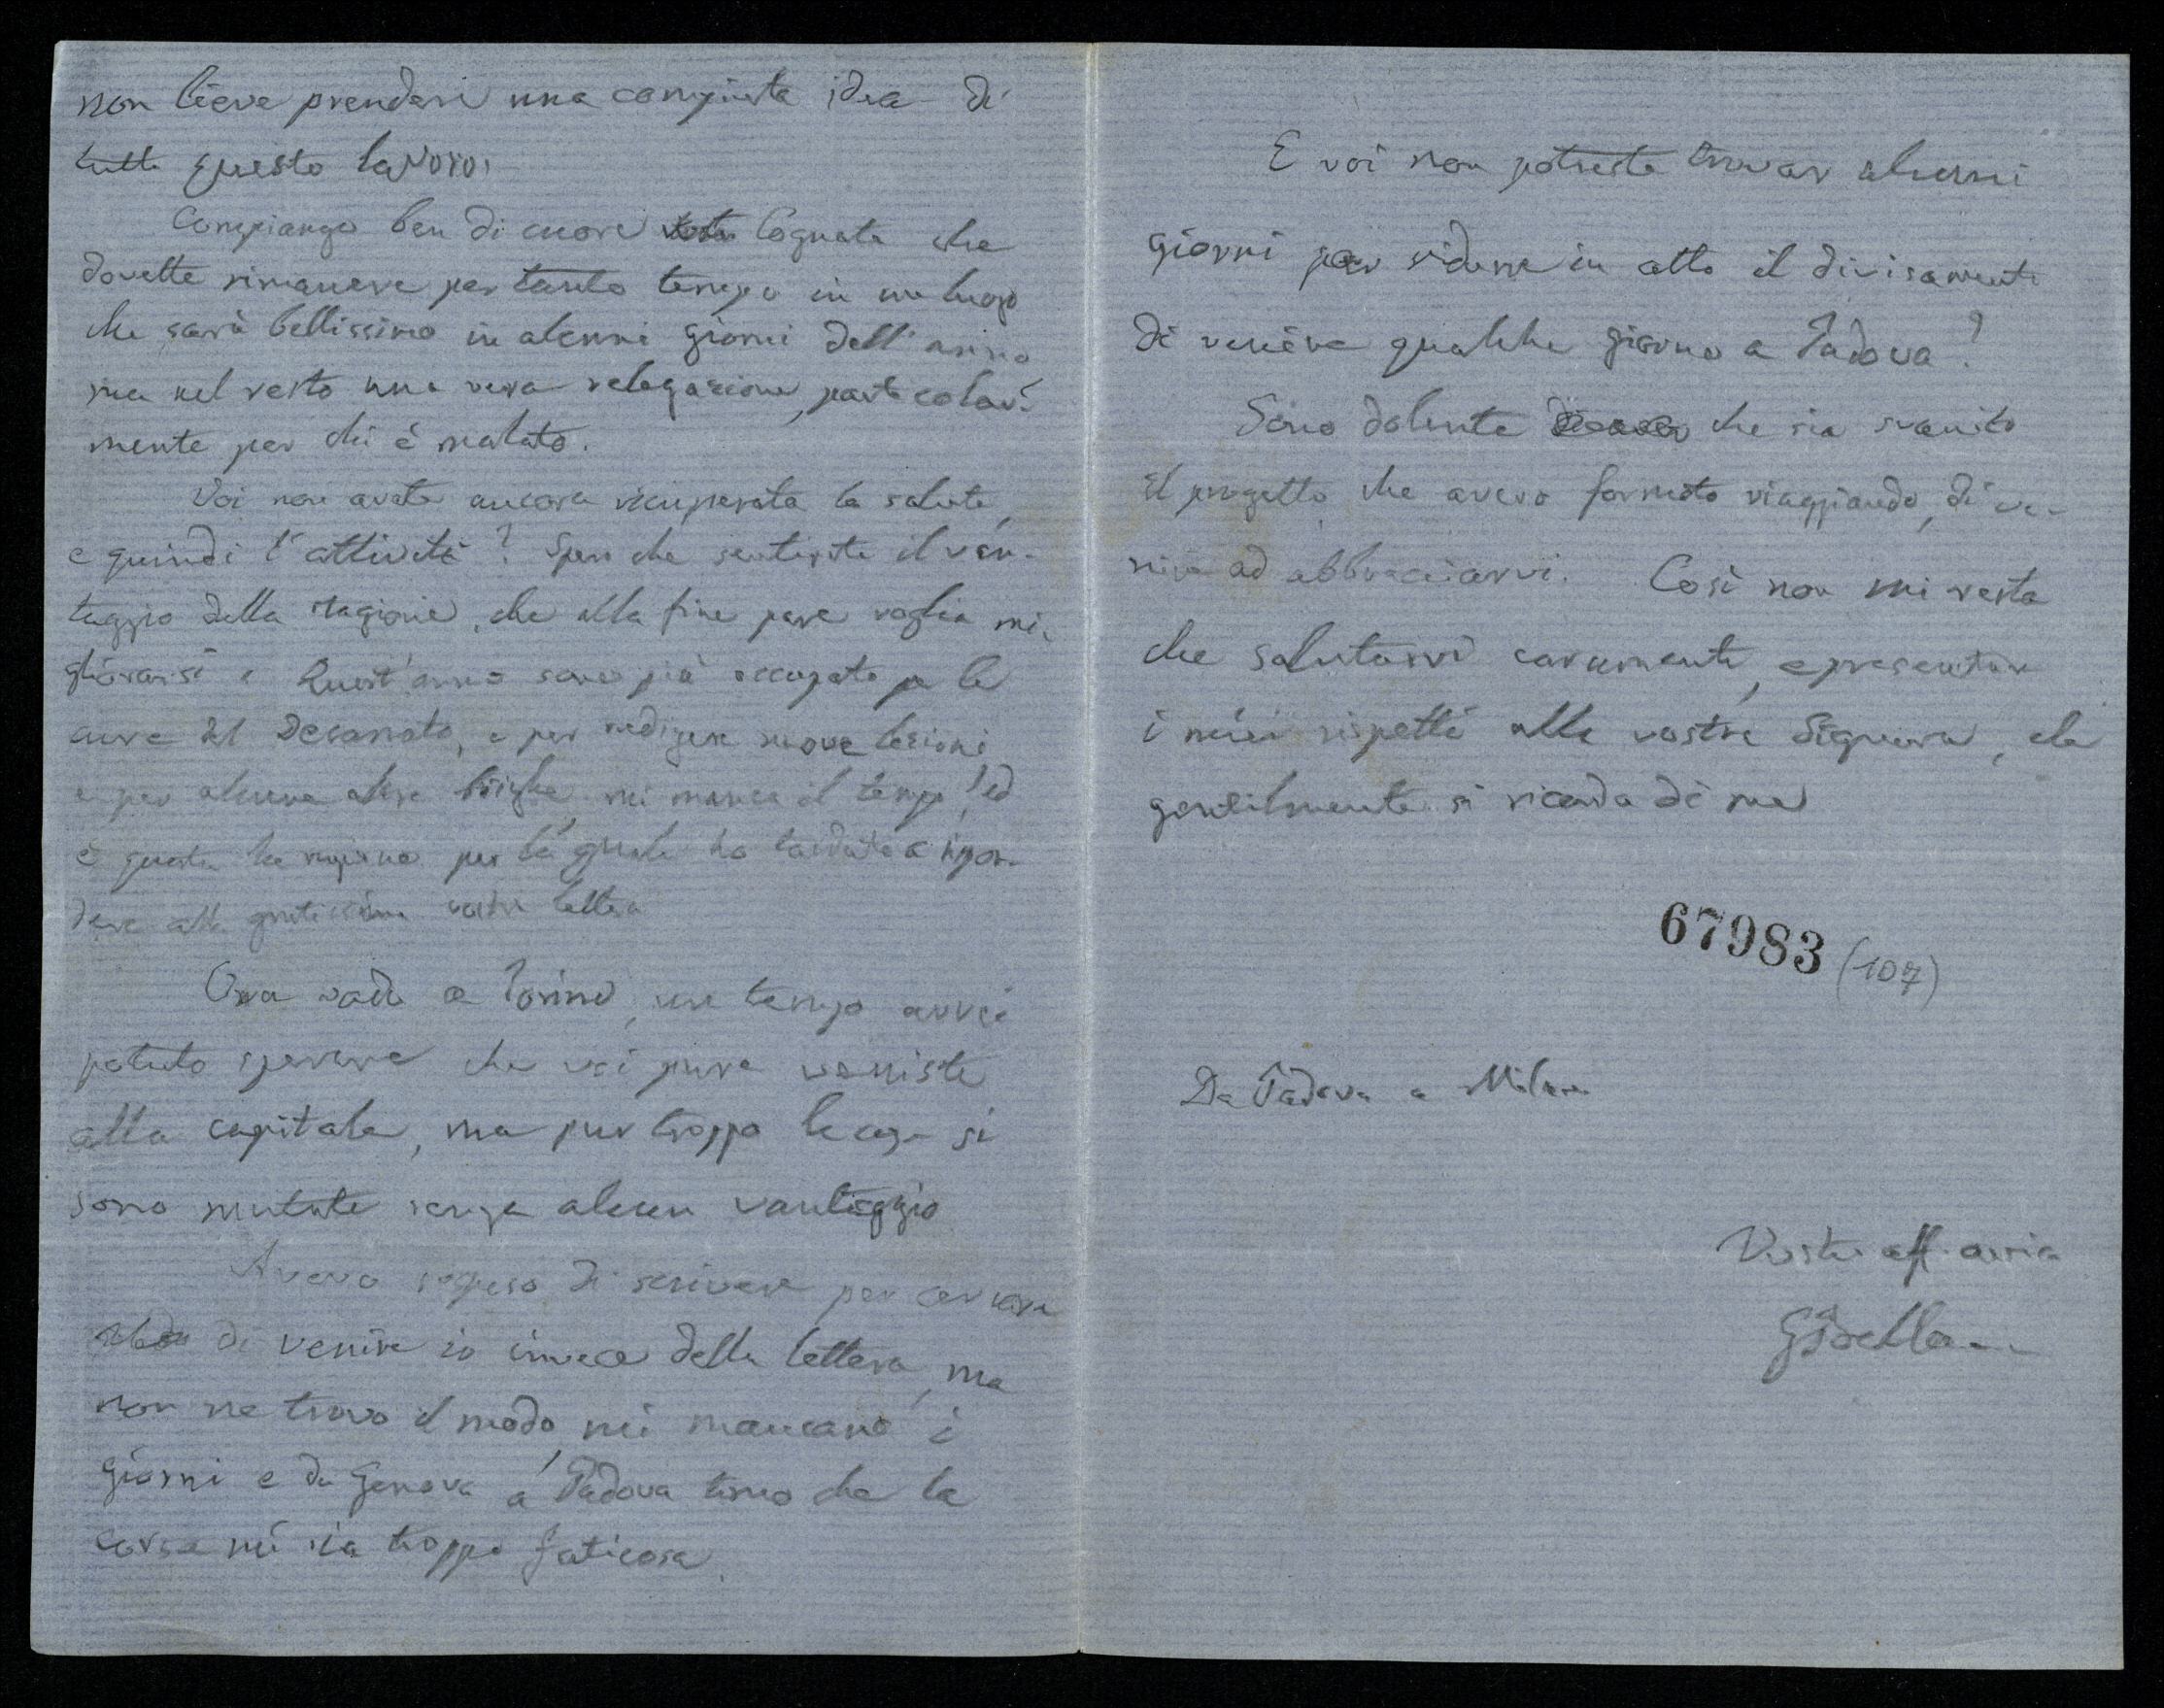 non lieve prendere una compiuta idea di
tutto questo lavoro.
Compiango ben di cuore vostra Cognata che
dovette rimanere per tanto tempo in un luogo
che sarà bellissimo in alcuni giorni dell'anno
ma nel resto una vera relegazione, particolar-
mente per chi è malato.
Voi non avete ancora ricuperata la salute,
e quindi l'attività? Spero che sentirete il van-
taggio della stagione, che alla fine pare voglia mi-
gliorarsi. Quest'anno sono più occupato per le
cure del Decanato, e per redigere nuove lezioni
e per alcune altre brighe mi manca il tempo, ed
è questa la ragione per la quale ho tardato a rispon-
dere alla gratissima vostra lettera
Ora vado a Torino, un tempo avrei
potuto sperare che voi pure veniste
alla capitale, ma pur troppo le cose si
sono mutate senza alcun vantaggio
Aveva sospeso di scrivere per cercare
modo di venire io invece della lettera, ma
non ne trovo il modo, mi mancano i
giorni e da Genova a Padova temo che la
corsa mi sia troppo faticosa.
E voi non potreste trovar alcuni
giorni per ridurre in atto il divisamento
di venire qualche giorno a Padova?
Sono dolente che sia svanito
il progetto, che avevo formato viaggiando, di ve-
nire ad abbracciarvi. Così non mi resta
che salutarvi caramente, e presentare
i miei rispetti alla vostra Signora, che
gentilmente si ricorda di me
67983 (107)
Da Padova a Milano
Vostro aff. amico